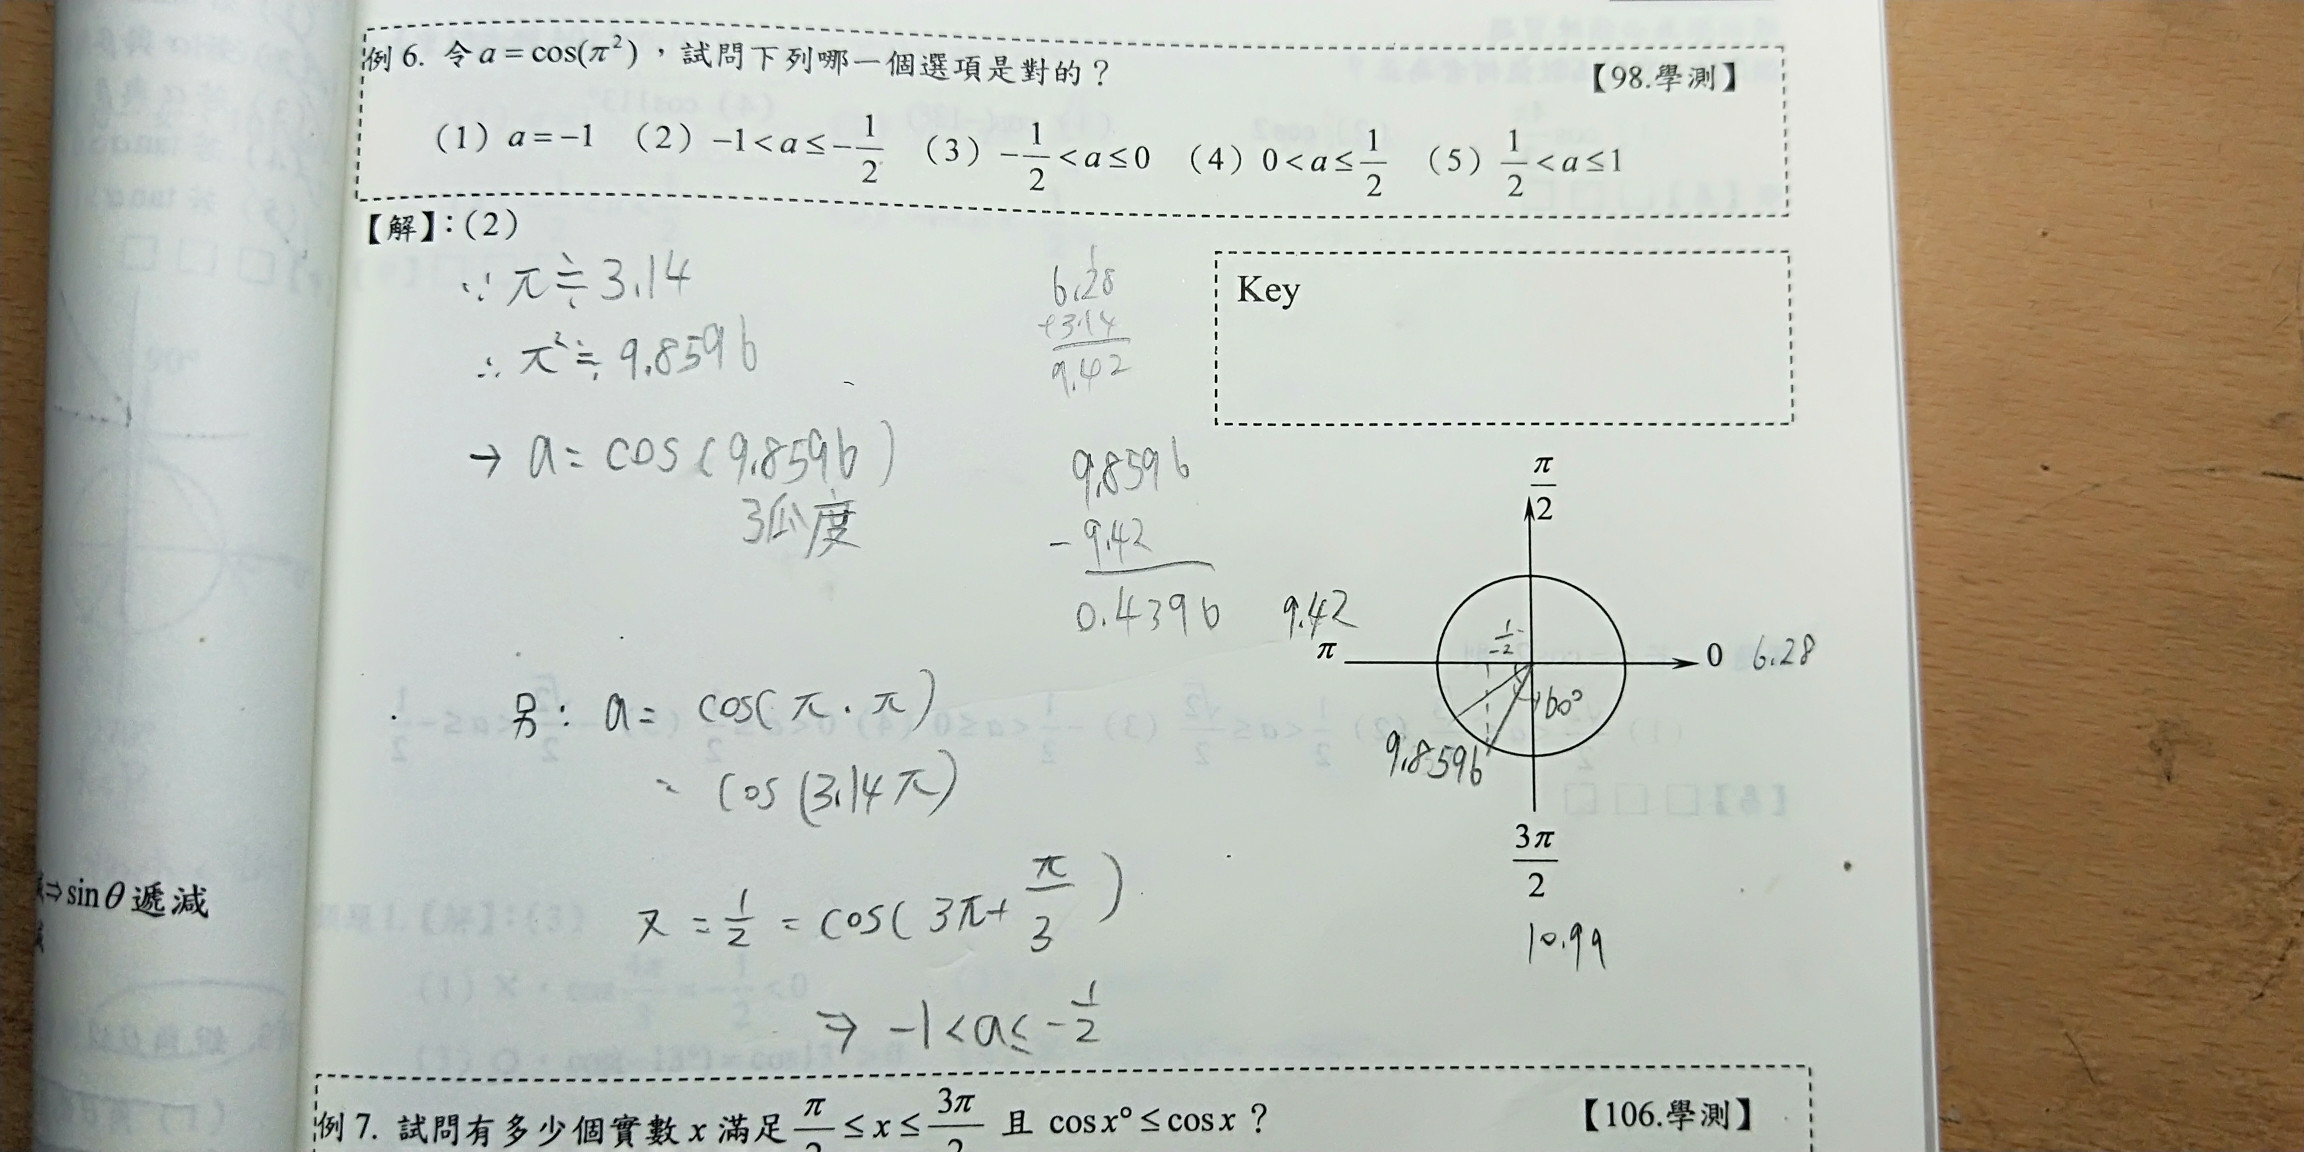 例 6. 令 a = cos(π²)，試問下列哪一個選項是對的？ 【98.學測】
(1) a = −1 (2) −1 < a ≤ −1/2 (3) −1/2 < a ≤ 0 (4) 0 < a ≤ 1/2 (5) 1/2 < a ≤ 1
【解】：(2)
∵ π ≒ 3.14
∴ π² ≒ 9.8596
→ a = cos(9.8596)
弧度
1
6.28
+3.14
9.42
9.8596
− 9.42
0.4396
Key
π/2
9.42
π
−1/2
0 6.28
60°
9.8596
3π/2
10.99
另： a = cos(π·π)
= cos(3.14π)
又 = 1/2 = cos(3π + π/3)
⇒ −1 < a ≤ −1/2
⇒ sinθ 遞減
例 7. 試問有多少個實數 x 滿足 π/2 ≤ x ≤ 3π/2 且 cos x° ≤ cos x？ 【106.學測】